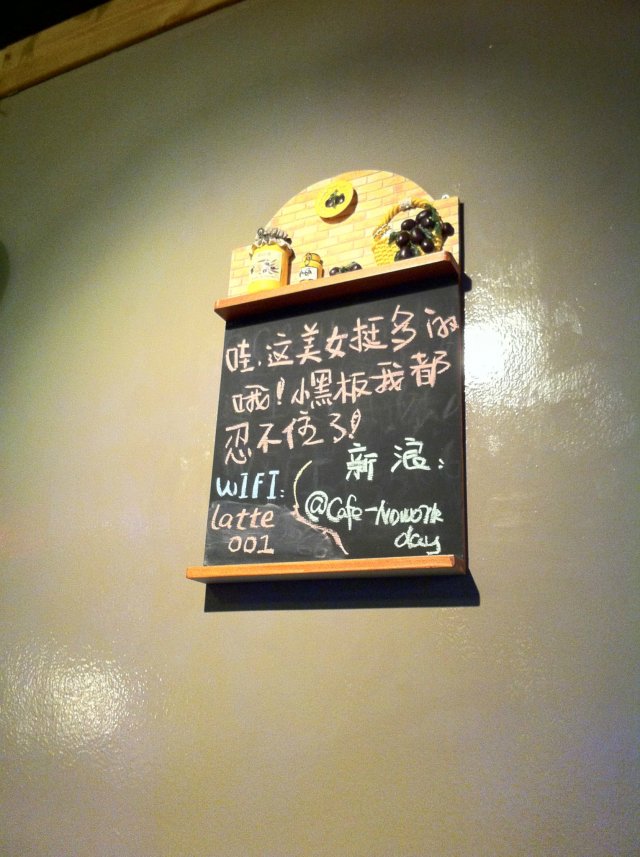 哇.这美女挺多的
哦!小黑板我都
忍不住了!
新浪:
@Cafe-Nowork
day
WIFI:
latte
001